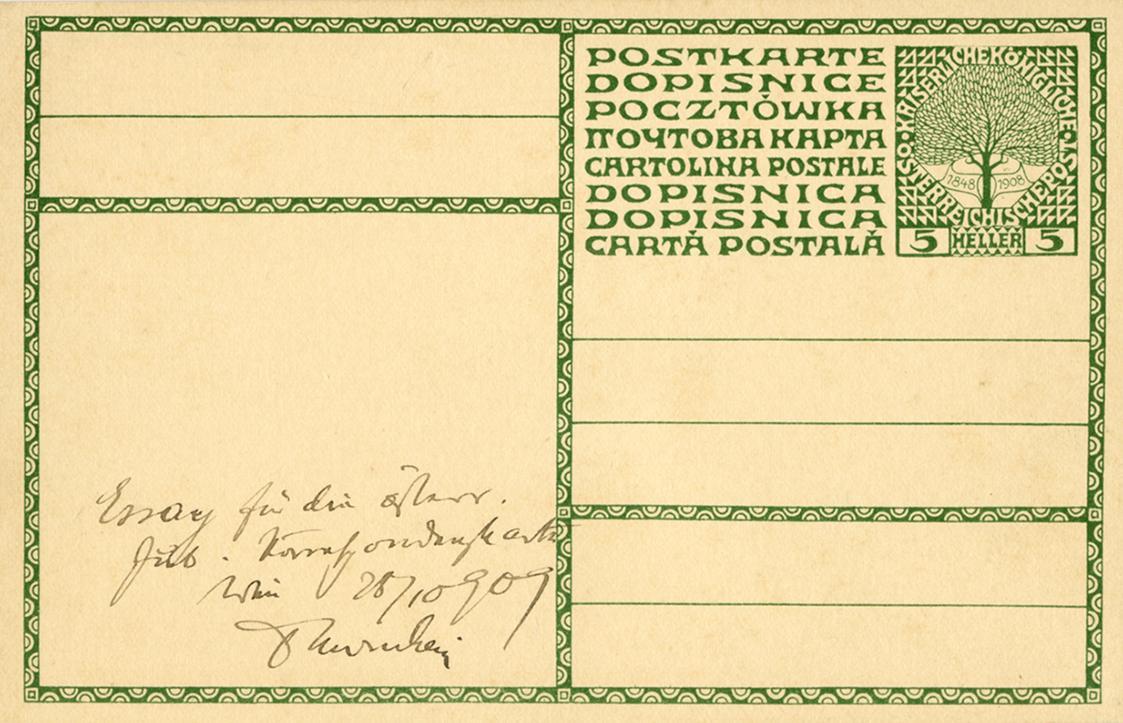 POSTKARTE
DOPISNICE
POCZTÓWKA
ПОЧТОВА КАРТА
CARTOLINA POSTALE
DOPISNICA
DOPISNICA
CARTĂ POSTALĂ
KAISERLICHE KÖNIGLICHE
ÖSTERREICHISCHE POST
1848 1908
5 HELLER 5
Essay für die österr.
Jub. Korrespondenzkarte
Wien 28/10 909